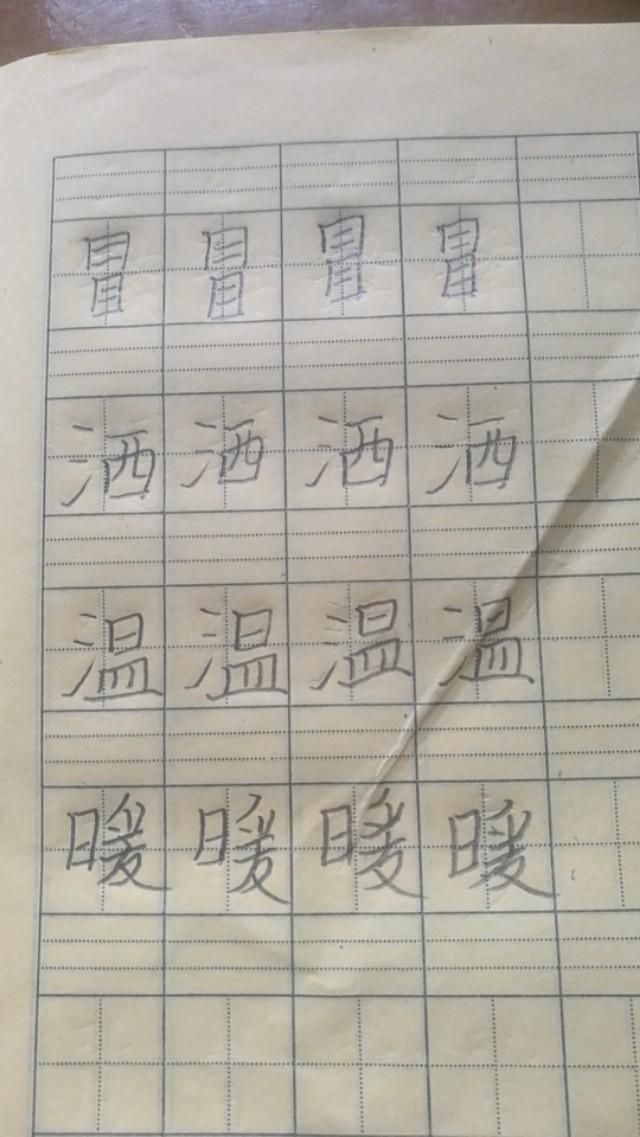 冒 冒 冒 冒
洒 洒 洒 洒
温 温 温 温
暖 暖 暖 暖